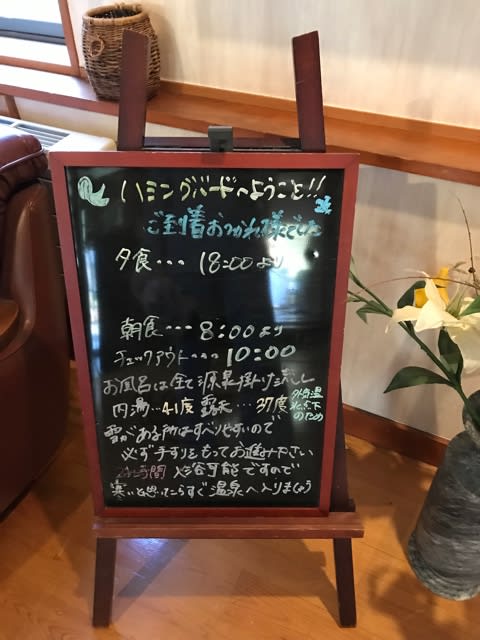 ハミングバードへようこそ!!
ご到着おつかれ様でした
夕食・・・18:00より
朝食・・・8:00より
チェックアウト・・・10:00
お風呂は全て源泉掛け流し
内湯・・・41度 露天・・・37度
外気温
氷点下
のため
雪がある所はすべりやすいので
必ず手すりをもってお進み下さい
24時間 入浴可能ですので
寒いと思ったらすぐ温泉へ入りましょう